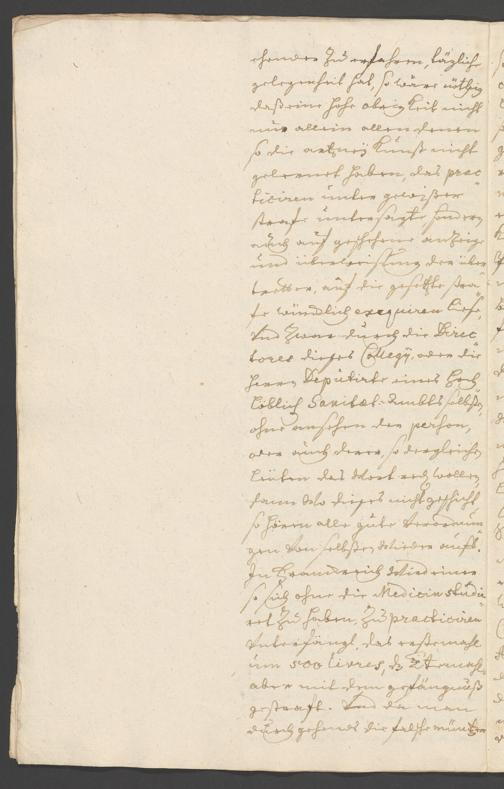 ehender zu erfahren, tägliche
gelegenheit hat, so wäre nöthig
daß eine hohe obrigkeit nicht
nur allein allen denen
so die artzneÿ kunst nicht
gelernet haben, das prac
ticiren unter gewißer
strafe untersagte sondern
auch auf geschehene anzeige
und überweissung der über
tretter, auf die gesetzte stra
fe würcklich exequiren liese,
Und zwar durch die Direc
tores dieses Collegÿ, oder die
herrn Depütirte eines Hoch
löblich Sanitæt-Ambts selbst,
ohne ansehen der person,
oder auch derer, so dergleichen
leuten das Wort reden wollen,
dann wo dieses nicht geschicht
so hören alle gute Verordnun
gen von selbsten wieder auf.
In Franckreich wird einer
so sich ohne die Medicin studi
ret zu haben, zu practiciren
Unterfängt, das erstemahl
um 500 livres, dz 2te mahl
aber mit dem gefängnuß
gestraft. Und da man
durchgehends die falschemüntzer